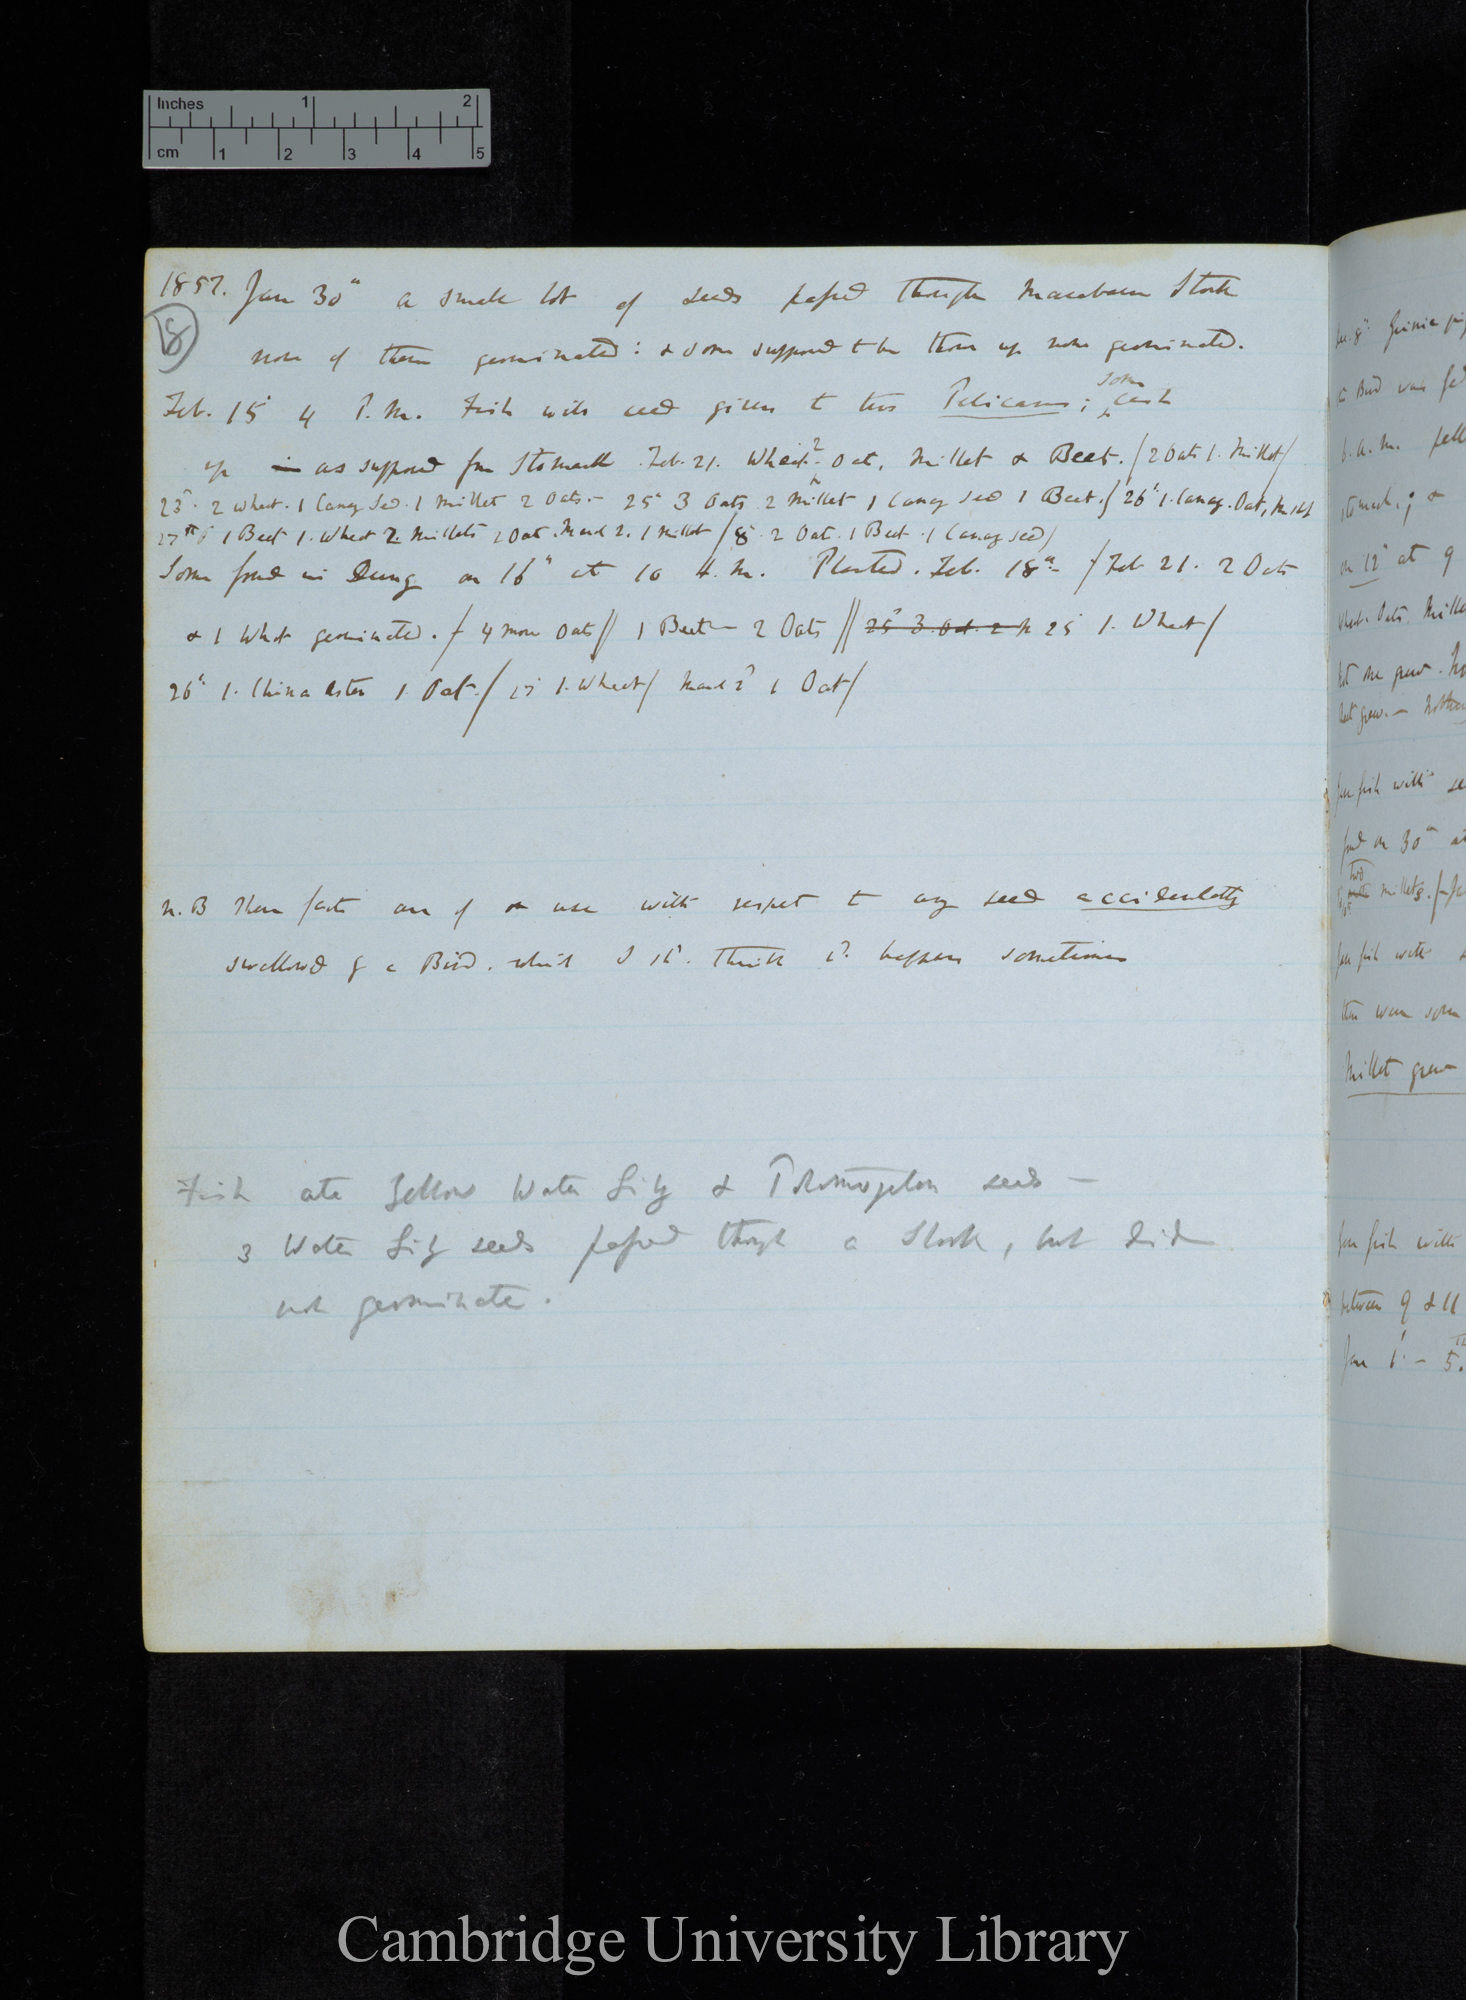 Inches 1 2
cm 1 2 3 4 5
1857. Jan 30th a small lot of seeds passed through Marabaou Stork
8
none of them germinated: & some supposed to be thrown up none germinated.
Feb. 15 4 P.M. Fish with seed given to two Pelicans; some cast
up in as supposed from Stomach. Feb. 21. Wheat. 2 Oat, Millet & Beet. / 2 Oats 1. Millet /
23d. 2 Wheat. 1 Canary Seed. 1 Millet 2 Oats. — 25th 3 Oats 2 Millet 1 Canary Seed 1 Beet. / 26th 1. Canary. Oat, Millet
27th 1 Beet 1. Wheat 2. Millets 1 Oat. March 2. 1 Millet / 8th 2 Oat. 1 Beet. 1 Canary Seed /
Some found in Dung on 16th at 10 A.M. Planted. Feb. 18th — / Feb 21. 2 Oats
& 1 Wheat germinated. / 4 more Oats // 1 Beet — 2 Oats // 25 3. Oat. 2 M 25 1. Wheat /
26th 1. China Aster 1 Oat. / 27 1. Wheat / March 2d 1 Oat /
N.B These facts are of no use with respect to any seed accidentally
swallowed by a Bird. which I shd. think wd. happen sometimes
Fish ate Yellow Water Lily & Potamogeton seeds —
3 Water Lily seeds passed through a Stork, but did
not germinate.
Guinea
Bird was
a.m.
stomach; &
on 12th at 9
Wheat. Oats.
grew.
grew. —
fish with
on 30th
millets.
fish with
there were some
Millet grew
fish with
between 9 & 11
Jan 1. — 5.
Cambridge University Library